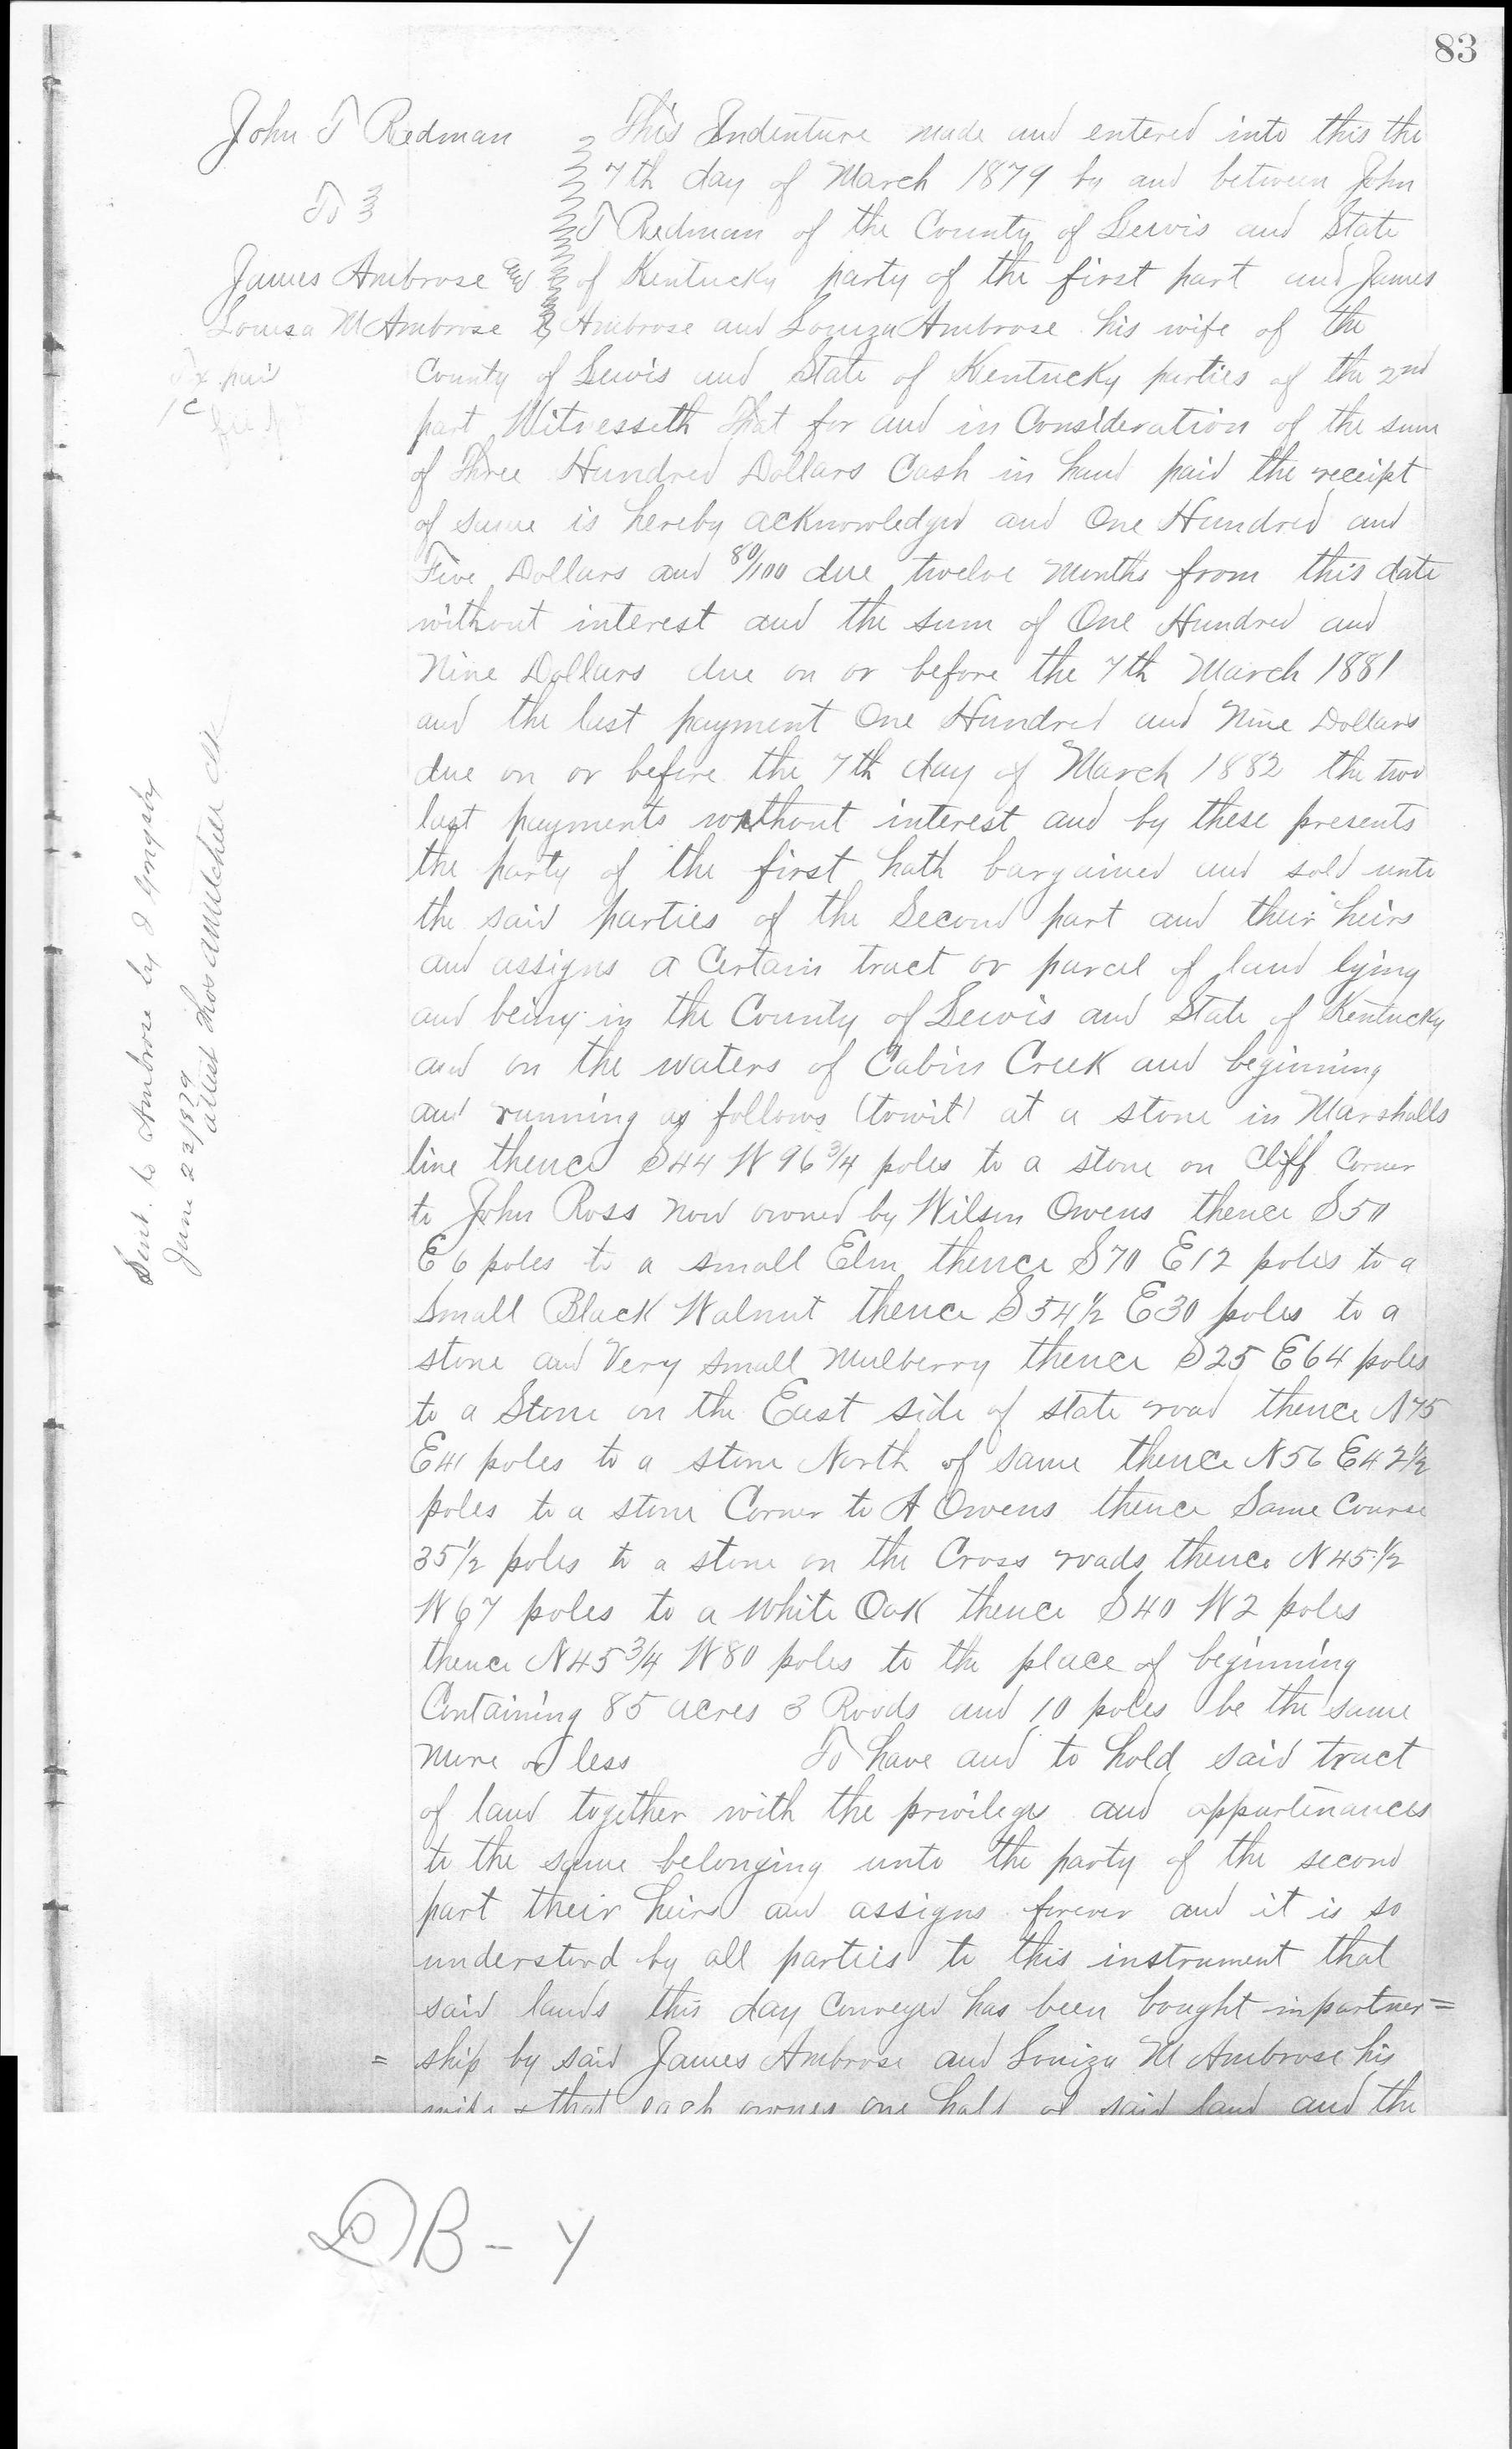 83
John T Redman
To
James Ambrose &
Louisa M Ambrose
Tx paid
1c
This Indenture made and entered into this the
7th day of March 1879 by and between John
T Redman of the County of Lewis and State
of Kentucky party of the first part and James
Ambrose and Louiza Ambrose his wife of the
County of Lewis and State of Kentucky parties of the 2nd
part Witnesseth That for and in Consideration of the sum
of Three Hundred Dollars Cash in hand paid the receipt
of same is hereby acknowledged and One Hundred and
Five Dollars and 80/100 due twelve months from this date
without interest and the sum of One Hundred and
Nine Dollars due on or before the 7th March 1881
and the last payment One Hundred and Nine Dollars
due on or before the 7th day of March 1882 the two
last payments without interest and by these presents
the party of the first hath bargained and sold unto
the said parties of the Second part and their heirs
and assigns a Certain tract or parcel of land lying
and being in the County of Lewis and State of Kentucky
and on the waters of Cabin Creek and beginning
and running as follows (towit) at a stone in Marshalls
line thence S44 W 96 3/4 poles to a stone on Cliff Corner
to John Ross now owned by Wilson Owens thence S50
E 6 poles to a small Elm thence S70 E12 poles to a
Small Black Walnut thence S54 1/2 E30 poles to a
stone and Very small Mulberry thence S25 E64 poles
to a Stone on the East side of state road thence N75
E41 poles to a stone North of same thence N56 E42 1/2
poles to a stone Corner to A Owens thence Same Course
35 1/2 poles to a stone on the Cross roads thence N45 1/2
W67 poles to a White Oak thence S40 W2 poles
thence N45 3/4 W80 poles to the place of beginning
Containing 85 acres 3 Roods and 10 poles be the same
more or less To have and to hold said tract
of land together with the privileges and appurtenances
to the same belonging unto the party of the second
part their heirs and assigns forever and it is so
understood by all parties to this instrument that
said lands this day Conveyed has been bought in partner=
= ship by said James Ambrose and Louiza M Ambrose his
wife & that each owns one half of said land and the
Sent to Ambrose by J Grigsby
June 23/1879
attest Thos A Mitchell Clk
DB - Y